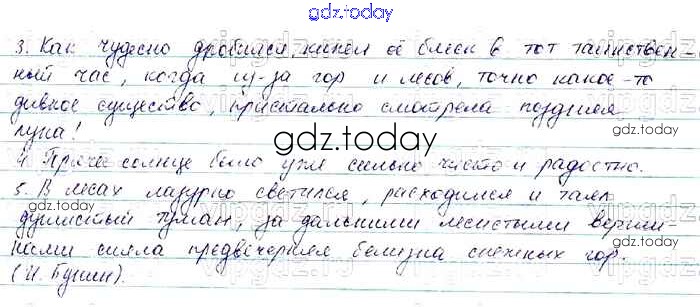 gdz.today
3. Как чудесно дробился, кипел её блеск в тот таинствен-
ный час, когда из-за гор и лесов, точно какое-то
дивное существо, пристально смотрела поздняя
луна!
gdz.today
4. Проче солнце было уже сильно чисто и радостно.
5. В лесах лазурно светился, расходился и таял
душистый туман, за дальними лесистыми верши-
нами сияла предвечерняя белизна снежных гор.
(И. Бунин).
gdz.today